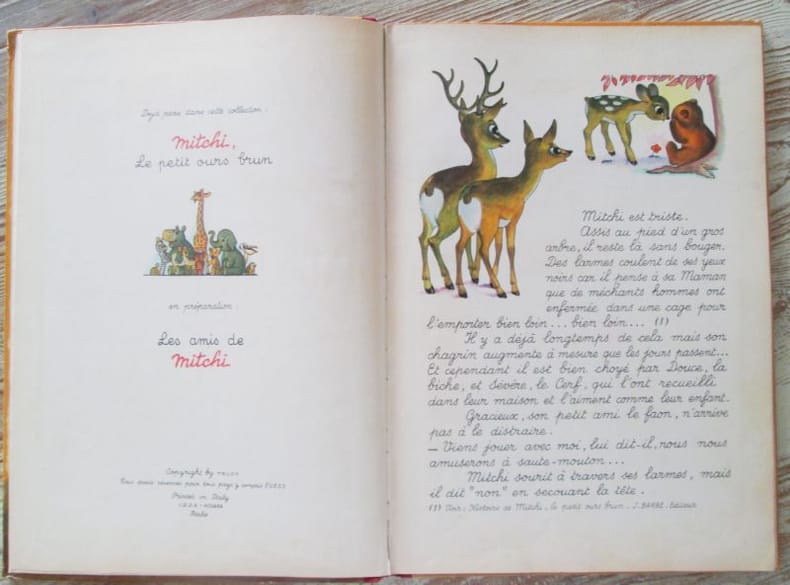 Déjà paru dans cette collection :
Mitchi,
Le petit ours brun
en préparation :
Les amis de
Mitchi
Copyright by
Tous droits réservés pour tous pays y compris l'URSS
Printed in Italy
Mitchi est triste.
Assis au pied d'un gros
arbre, il reste là sans bouger.
Des larmes coulent de ses yeux
noirs car il pense à sa Maman
que de méchants hommes ont
enfermée dans une cage pour
l'emporter bien loin... bien loin... (1)
Il y a déjà longtemps de cela mais son
chagrin augmente à mesure que les jours passent...
Et cependant il est bien choyé par Douce, la
biche, et Sévère, le Cerf, qui l'ont recueilli
dans leur maison et l'aiment comme leur enfant.
Gracieux, son petit ami le faon, n'arrive
pas à le distraire.
- Viens jouer avec moi, lui dit-il, nous nous
amuserons à saute-mouton...
Mitchi sourit à travers ses larmes, mais
il dit "non" en secouant la tête.
(1) Voir : Histoire de Mitchi, le petit ours brun. J. BARBE, Editeur